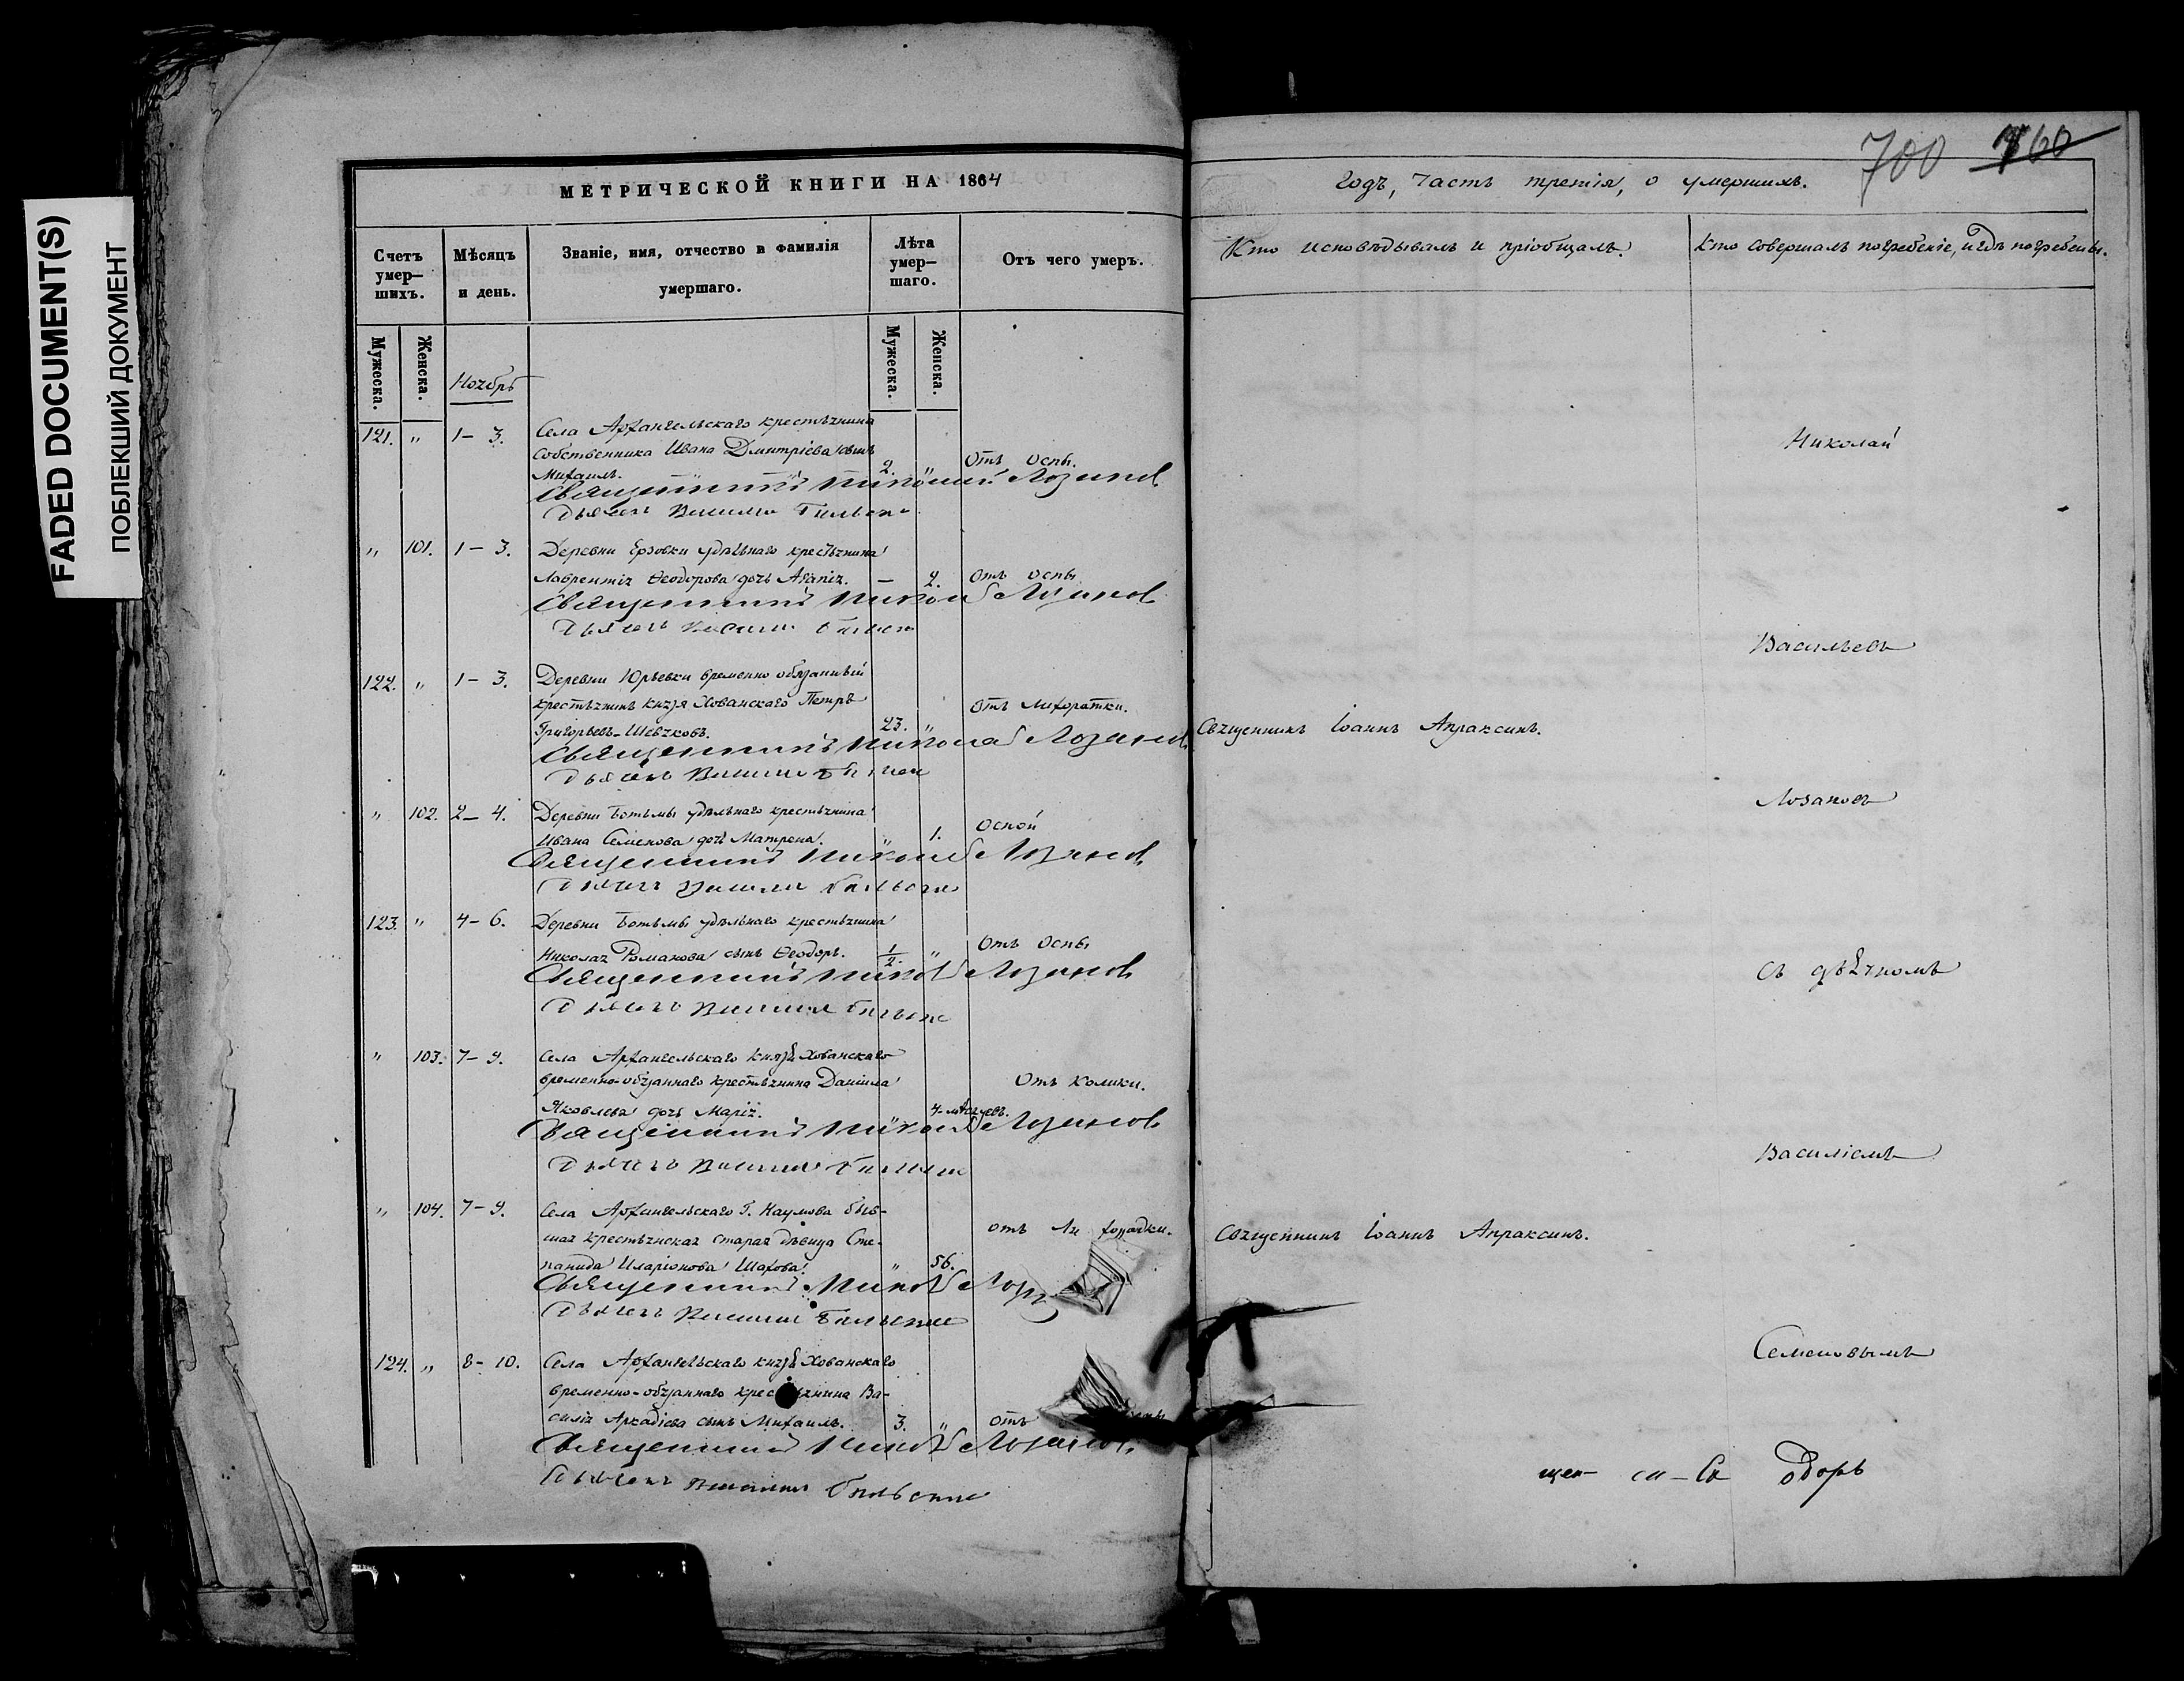 FADED DOCUMENT(S)
ПОБЛЕКШИЙ ДОКУМЕНТ
МЕТРИЧЕСКОЙ КНИГИ НА 1864
Счетъ умер-шихъ.
Мѣсяцъ и день.
Званіе, имя, отчество и фамилія умершаго.
Лѣта умер-шаго.
Отъ чего умеръ.
Мужеска.
Женска.
Мужеска.
Женска.
Ноябрь
121. " 1-3. Села Архангельскаго крестьянина
собственника Ивана Дмитріева сынъ
Михаилъ. 2. " Отъ оспы.
Священникъ Николай Лозановъ
Дьячекъ Василій
" 101. 1-3. Деревни Ерзовки удѣльнаго крестьянина
Лаврентія Ѳеодорова дочь Агапія. - 2. Отъ оспы
Священникъ Николай Лозановъ
Дьячекъ Василій
122. " 1-3. Деревни Юрьевки временно обязанный
крестьянинъ князя Хованскаго Петръ
Григорьевъ Шевяковъ. 23. " Отъ лихоратки.
Священникъ Николай Лозановъ
Дьячекъ Василій
" 102. 2-4. Деревни Ботьмы удѣльнаго крестьянина
Ивана Семенова дочь Матрена. " 1. Оспой
Священникъ Николай Лозановъ
Дьячекъ Василій
123. " 4-6. Деревни Ботьмы удѣльнаго крестьянина
Николая Романова сынъ Ѳеодоръ. 1/2. " Отъ оспы
Священникъ Николай Лозановъ
Дьячекъ Василій
" 103. 7-9. Села Архангельскаго князя Хованскаго
временно-обязаннаго крестьянина Даніила
Яковлева дочь Марія. " 4-мѣсяцевъ. Отъ колики.
Священникъ Николай Лозановъ
Дьячекъ Василій
" 104. 7-9. Села Архангельскаго Г. Наумова быв-
шая крестьянская старая дѣвица Сте-
панида Иларіонова Шахова. " 56. отъ Ли хорадки.
Священникъ Николай
Дьячекъ Василій
124. " 8-10. Села Архангельскаго князя Хованскаго
временно-обязаннаго крестьянина Ва-
силія Аркадіева сынъ Михаилъ. 3. " отъ
Священникъ Николай Лозановъ
Дьячекъ Василій
700 760
Годъ, часть третія, о умершихъ.
Кто исповѣдывалъ и пріобщалъ.
Кто совершалъ погребеніе, и гдѣ погребены.
Николай
Васильевъ
Священникъ Іоаннъ Апраксинъ.
Лозановъ
съ дьячкомъ
Василіемъ
Священникъ Іоаннъ Апраксинъ.
Семеновымъ